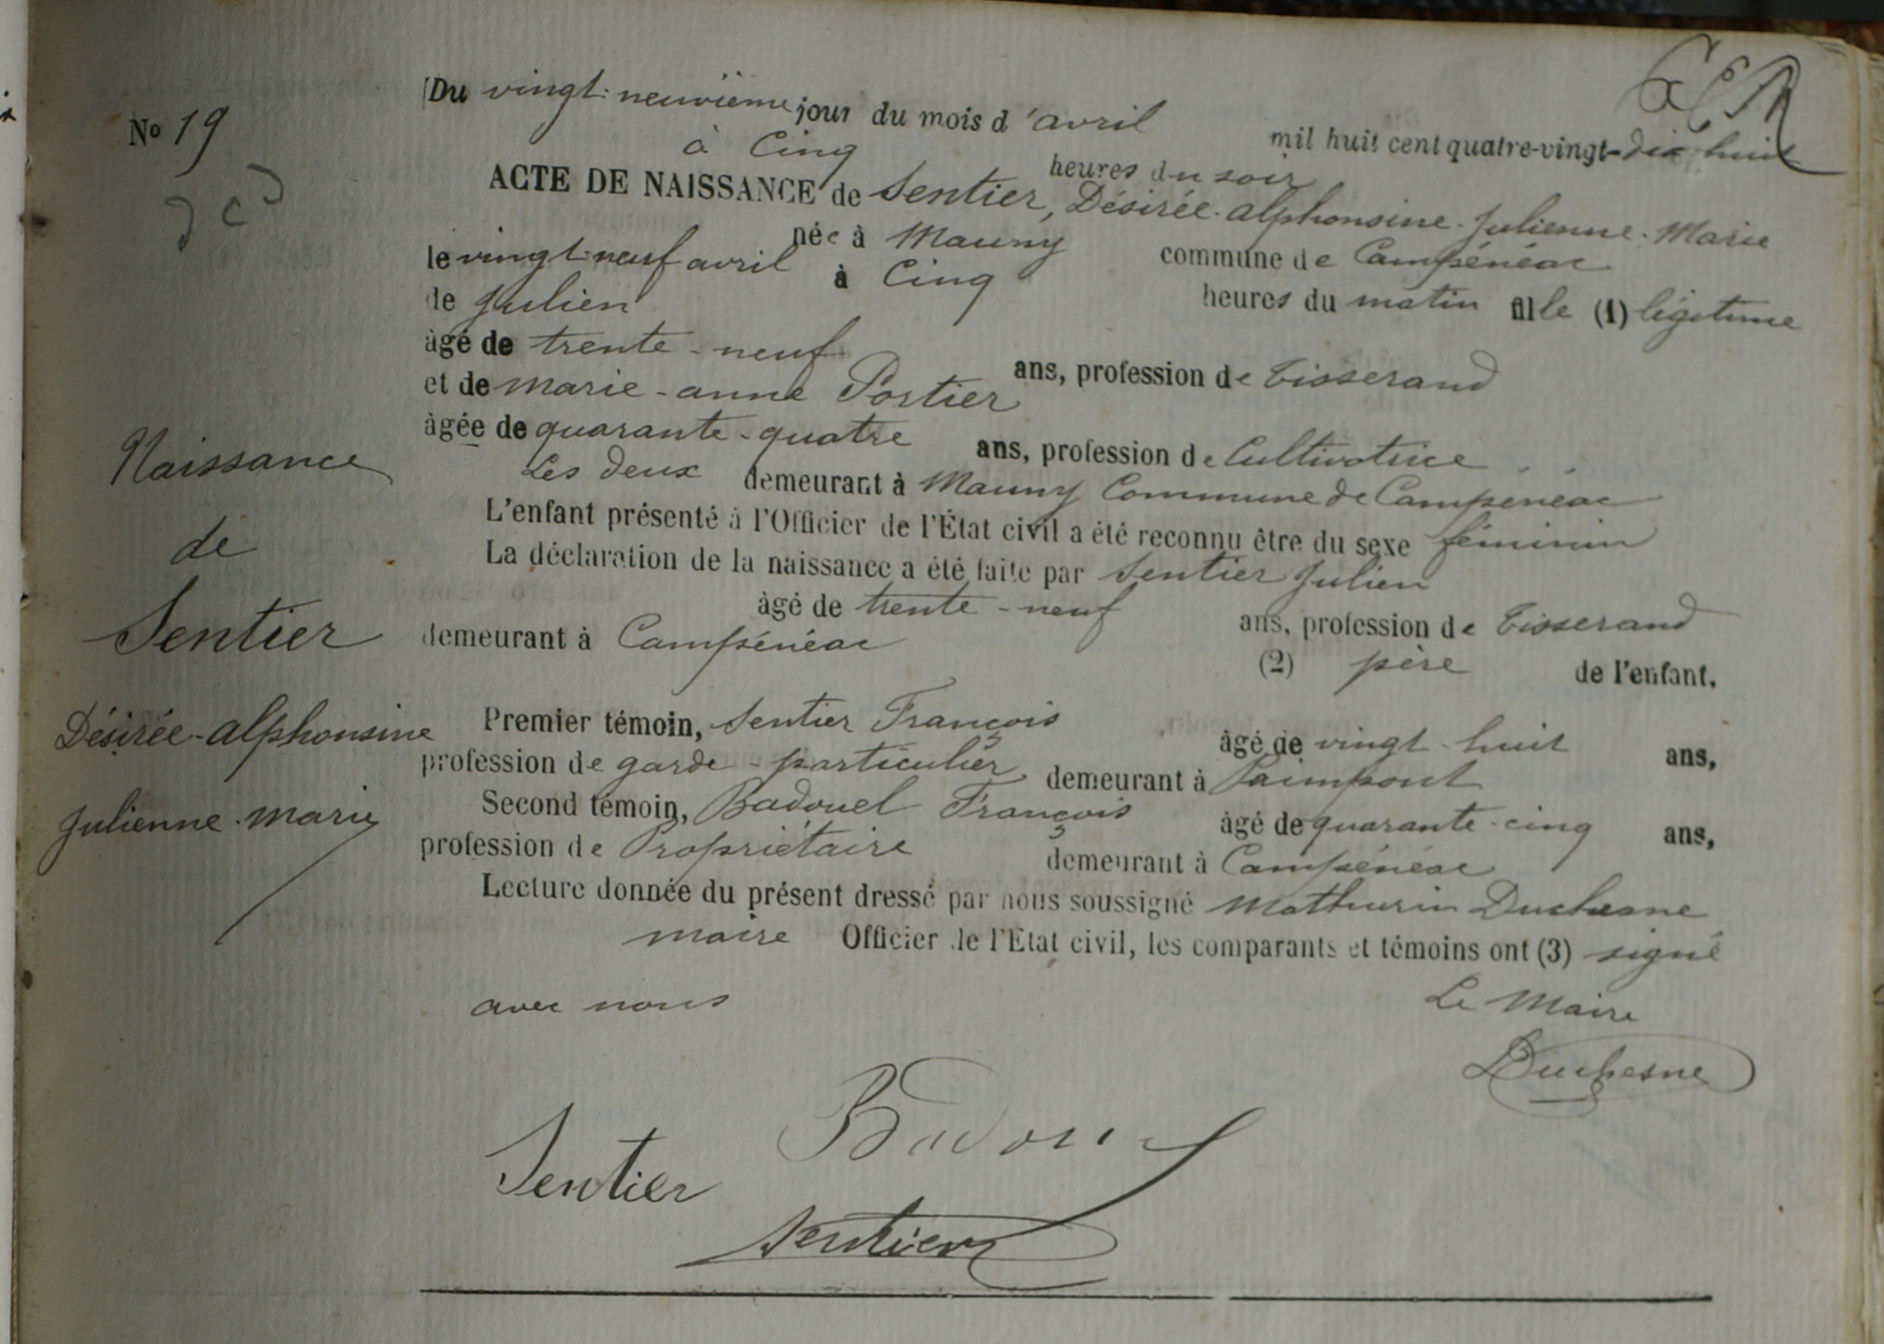 Nº 19
dcd
Naissance
de
Sentier
Désirée-alphonsine
Julienne. marie
Du vingt-neuvième jour du mois d'avril mil huit cent quatre-vingt-dix huit
à Cinq heures du soir
ACTE DE NAISSANCE de Sentier, Désirée-alphonsine-Julienne-Marie
née à Mauny commune de Campénéac
le vingt-neuf avril à Cinq heures du matin fille (1) légitime
de Julien
âgé de trente-neuf ans, profession de tisserand
et de marie-anne Portier
âgée de quarante-quatre ans, profession de Cultivatrice
Les deux demeurant à Mauny Commune de Campénéac
L'enfant présenté à l'Officier de l'État civil a été reconnu être du sexe féminin
La déclaration de la naissance a été faite par Sentier Julien
âgé de trente-neuf ans, profession de tisserand
demeurant à Campénéac (2) père de l'enfant.
Premier témoin, Sentier François âgé de vingt-huit ans,
profession de garde-particulier demeurant à Paimpont
Second témoin, Badouel François âgé de quarante-cinq ans,
profession de Propriétaire demeurant à Campénéac
Lecture donnée du présent dressé par nous soussigné Mathurin Duchesne
maire Officier de l'État civil, les comparants et témoins ont (3) signé
avec nous
Le Maire
Duchesne
Badouel
Sentier
Sentier